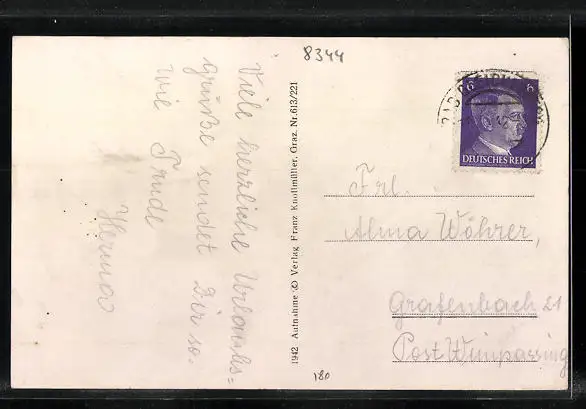 8344
Viele herzliche Urlaubs=
grüße sendet Dir so.
wie Trude
Herma
1942 Aufnahme © Verlag Franz Knollmüller, Graz. Nr. 613/221
6 6
DEUTSCHES REICH
Frl.
Alma Wöhrer,
Grafenbach 21
Post Wimpassing
180